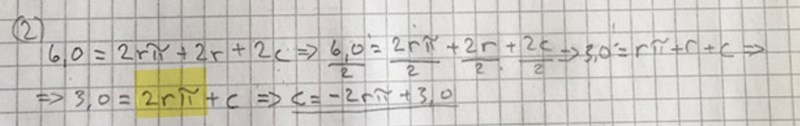 ②
6,0 = 2rπ + 2r + 2c ⇒ 6,0/2 = 2rπ/2 + 2r/2 + 2c/2 ⇒ 3,0 = rπ + r + c ⇒
⇒ 3,0 = 2rπ + c ⇒ c = -2rπ + 3,0